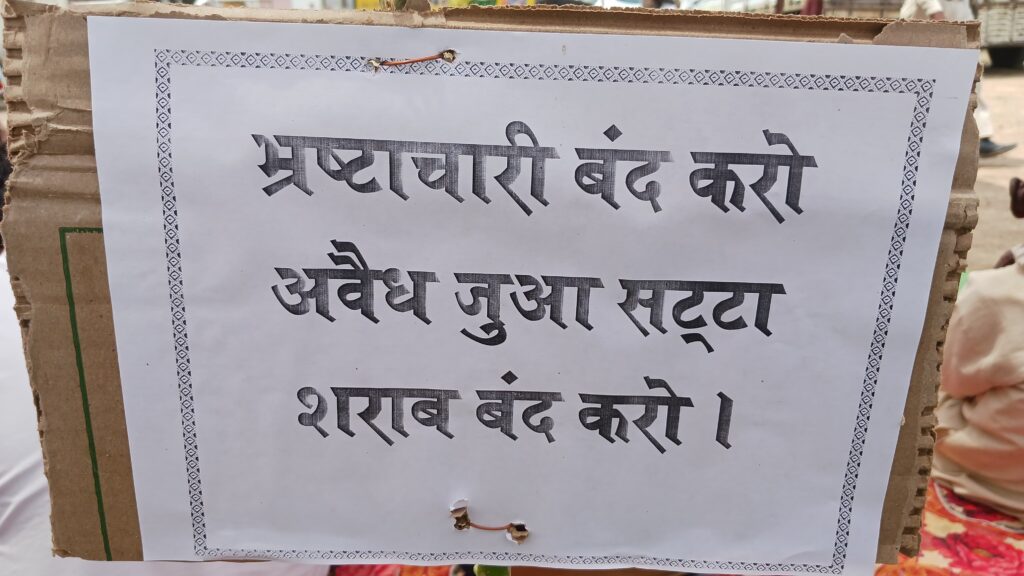 भ्रष्टाचारी बंद करो
अवैध जुआ सट्‌टा
शराब बंद करो ।